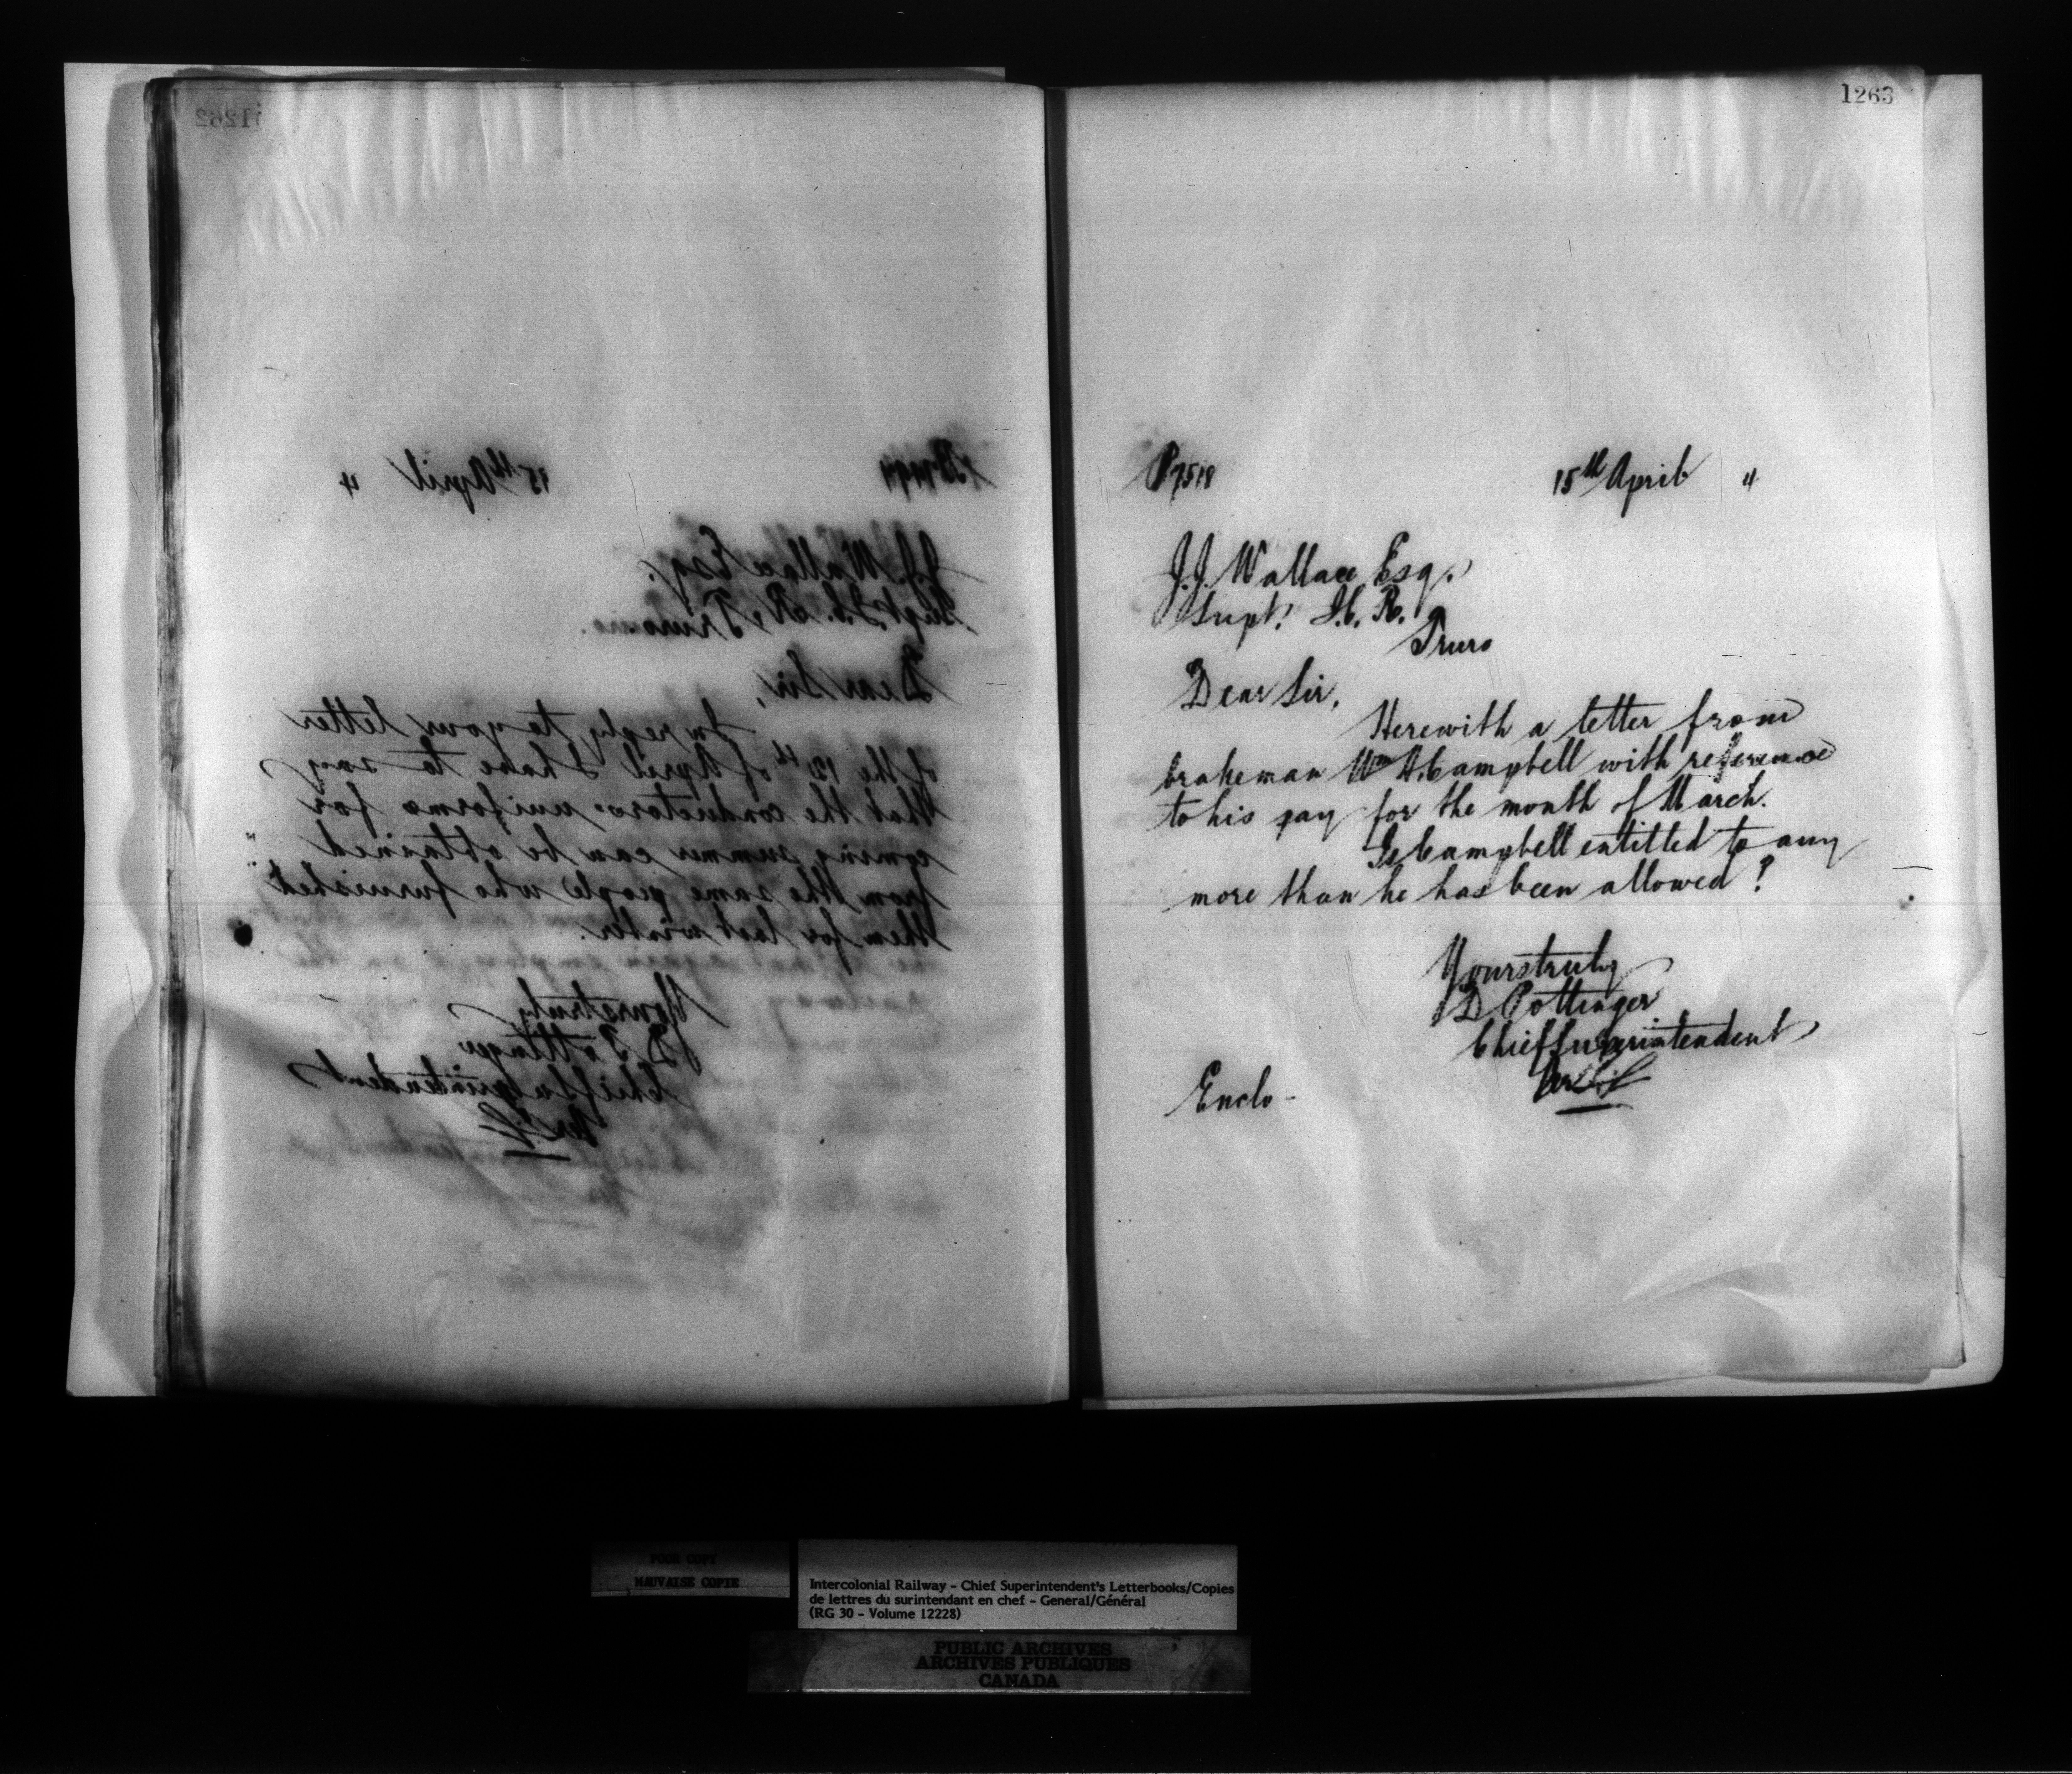 1262
15th April 4
J.J. Wallace Esq.
Supt. I.C.R. Truro
Dear Sir,
In reply to your letter
of the 12th of April I have to say
that the conductors uniforms for
coming summer can be obtained
from the same people who furnished
them for last winter.
Yours truly
D Pottinger
Chief Superintendent
1263
P7518 15th April 4
J.J. Wallace Esq.
Supt. I.C.R.
Truro
Dear Sir,
Herewith a letter from
brakeman Wm H. Campbell with reference
to his pay for the month of March.
Is Campbell entitled to any
more than he has been allowed?
Yours truly
D Pottinger
Chief Superintendent
Enclo-
POOR COPY
MAUVAISE COPIE
Intercolonial Railway - Chief Superintendent's Letterbooks/Copies
de lettres du surintendant en chef - General/Général
(RG 30 - Volume 12228)
PUBLIC ARCHIVES
ARCHIVES PUBLIQUES
CANADA